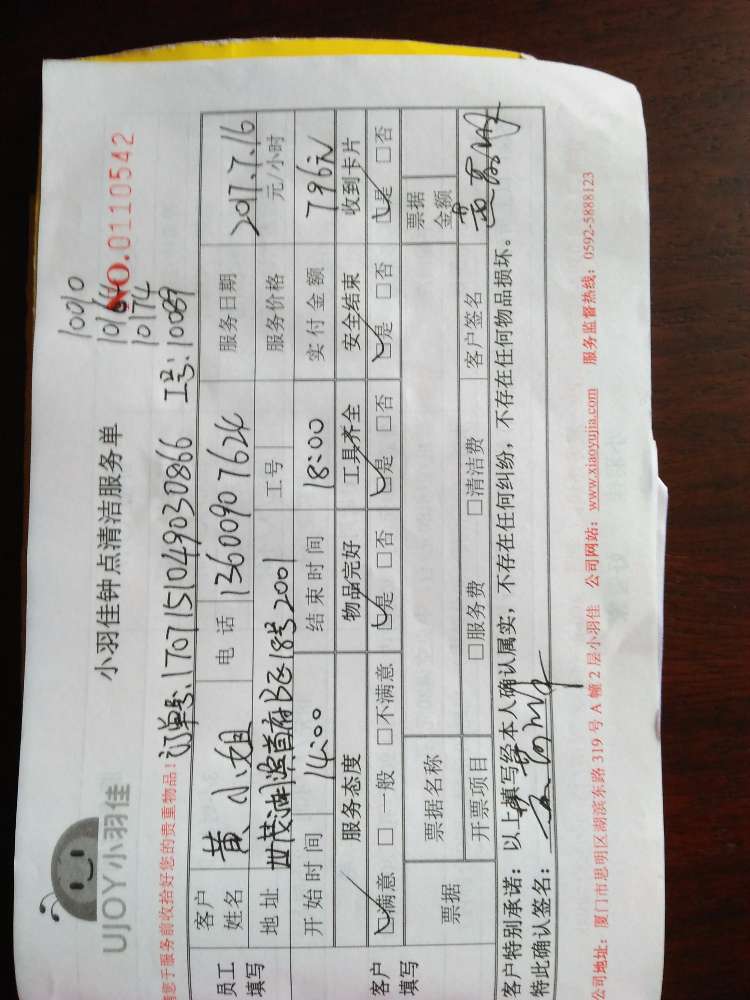 UJOY小羽佳
小羽佳钟点清洁服务单
10010
10164
10174
NO.01110542
请您于服务前收拾好您的贵重物品!
订单号:1707151049030866 工号:10089
员工填写 客户姓名 黄小姐 电话 13600907624 服务日期 2017.7.16
地址 世茂湖滨首府B区18号2001 工号 服务价格 元/小时
开始时间 14:00 结束时间 18:00 实付金额 796元
客户填写 服务态度 物品完好 工具齐全 安全结束 收到卡片
☑满意 □一般 □不满意 ☑是 □否 ☑是 □否 ☑是 □否 ☑是 □否
票据 票据名称 票据金额
开票项目 □服务费 □清洁费 客户签名
客户特别承诺:以上填写经本人确认属实,不存在任何纠纷,不存在任何物品损坏。
特此确认签名:
公司地址:厦门市思明区湖滨东路 319 号 A 幢 2 层小羽佳 公司网站:www.xiaoyujia.com 服务监督热线:0592-5888123